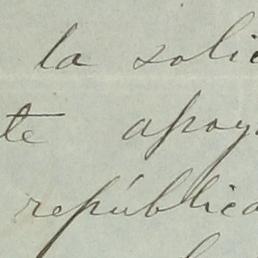 la solic
te apoy
república